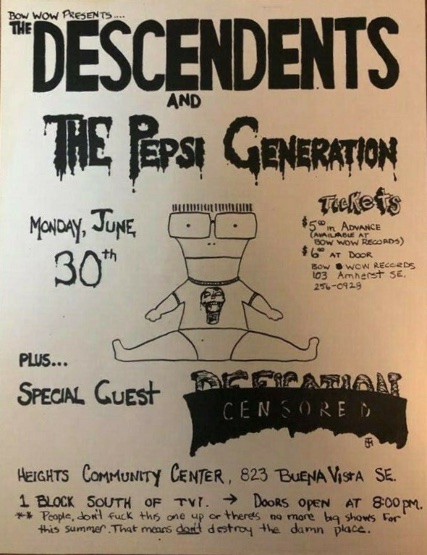 BOW WOW PRESENTS....
THE DESCENDENTS
AND
THE PEPSI GENERATION
MONDAY, JUNE
30th
TICKETS
$5.00 in ADVANCE
(AVAILABLE AT
BOW WOW RECORDS)
$6.00 AT DOOR
BOW WOW RECORDS
103 Amherst SE.
256-0928
PLUS...
SPECIAL GUEST
DEFICATION
CENSORED
HEIGHTS COMMUNITY CENTER, 823 BUENA VISTA SE.
1 BLOCK SOUTH OF TVI. → DOORS OPEN AT 8:00 pm.
** People, don't fuck this one up or theres no more big shows for
this summer. That means don't destroy the damn place.